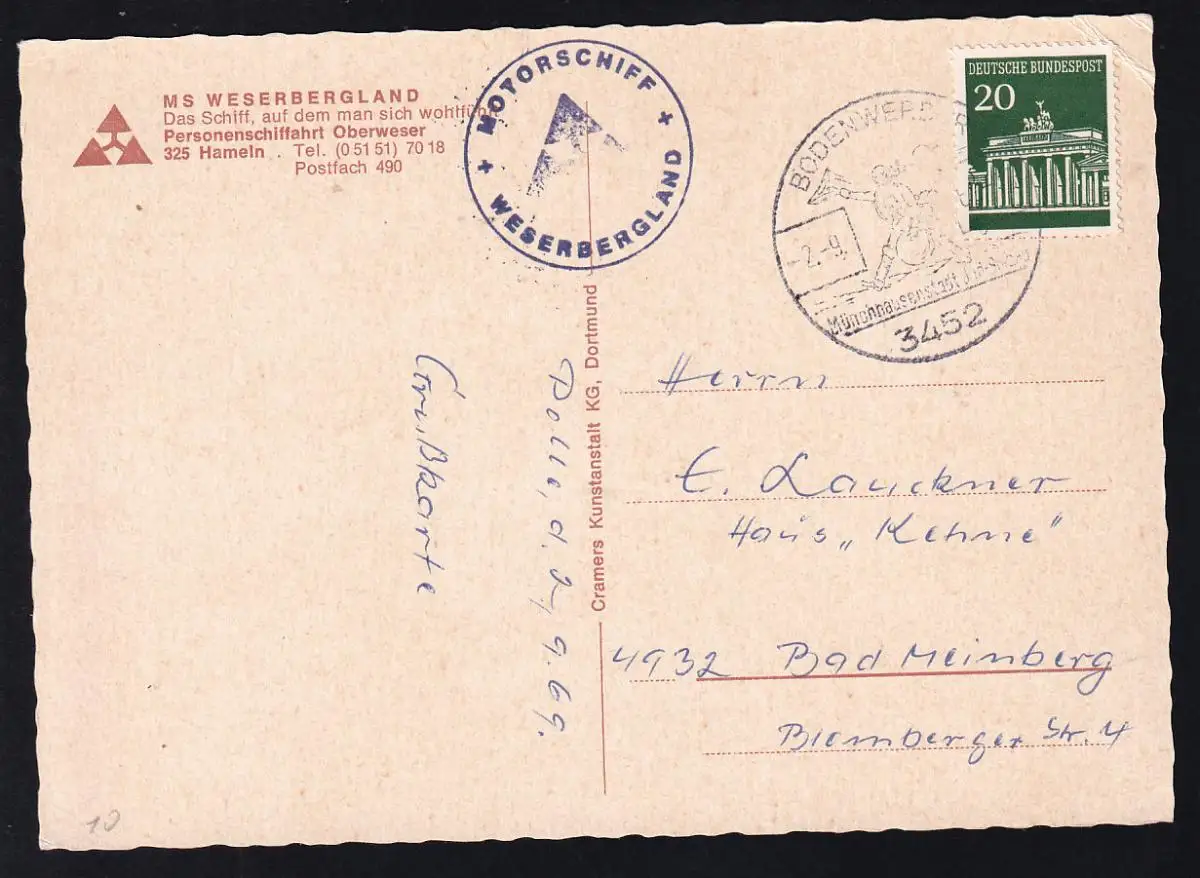 MS WESERBERGLAND
Das Schiff, auf dem man sich wohlfühlt
Personenschiffahrt Oberweser
325 Hameln Tel. (0 51 51) 70 18
Postfach 490
+ MOTORSCHIFF +
WESERBERGLAND
BODENWERDER
2.-9.
Münchhausenstadt
3452
DEUTSCHE BUNDESPOST
20
Cramers Kunstanstalt KG, Dortmund
Polle, d. 2, 9. 69.
Grußkarte
Herrn
E. Lauckner
Haus „Kehne"
4932 Bad Meinberg
Blomberger Str. 4
10